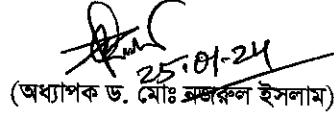 25.01.24
(অধ্যাপক ড. মোঃ নজরুল ইসলাম)